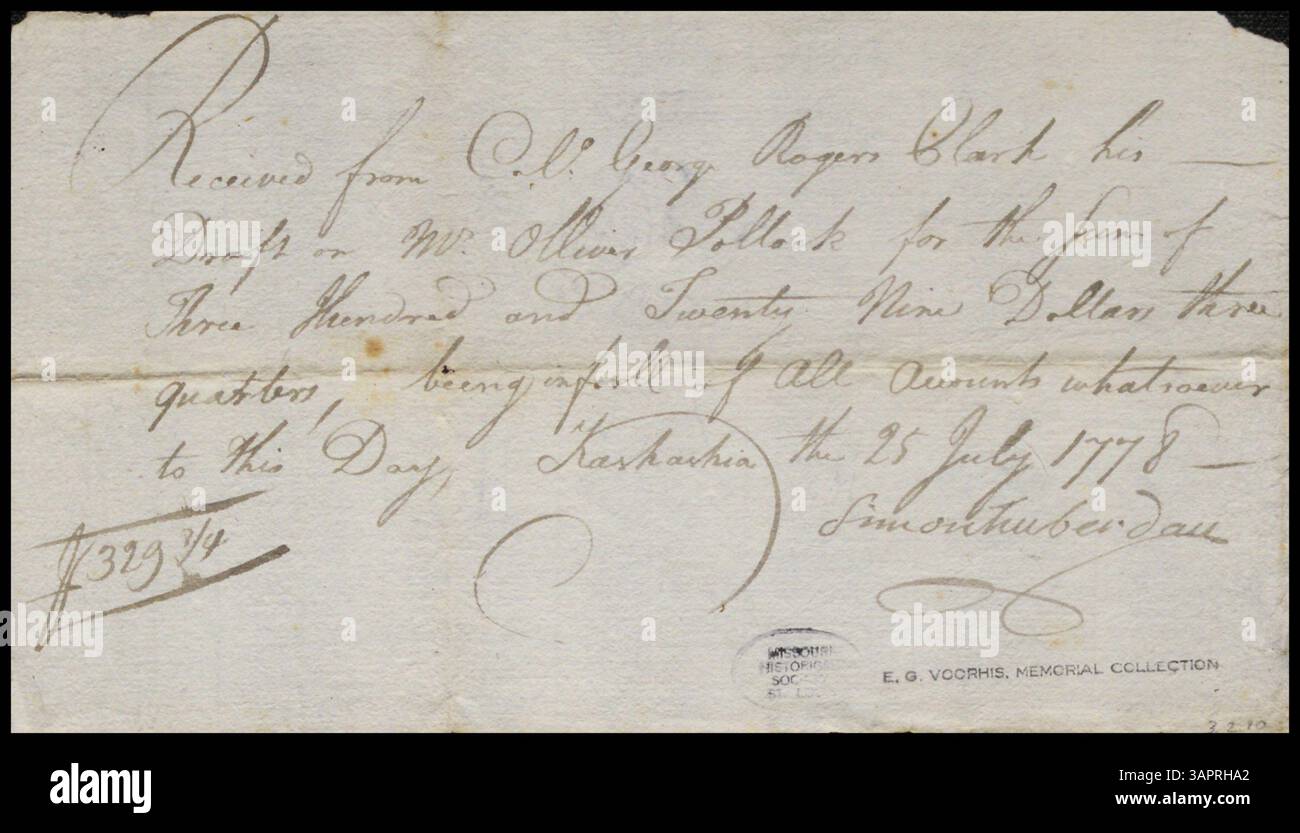 Received from Col.º George Rogers Clark his —
Draft on Mr. Olliver Pollock for the Sum of
Three Hundred and Twenty Nine Dollars three
quarters, being in full of all acounts whatsoever
to this Day, Kaskaskia the 25 July 1778 —
Simonhuberdau
$329 3/4
MISSOURI
HISTORICAL
SOCIETY
ST. LOUIS
E. G. VOORHIS, MEMORIAL COLLECTION
3.2.90
a a a a
a a a
a a
a alamy a
a a a
a a a a
alamy
Image ID: 3APRHA2
www.alamy.com